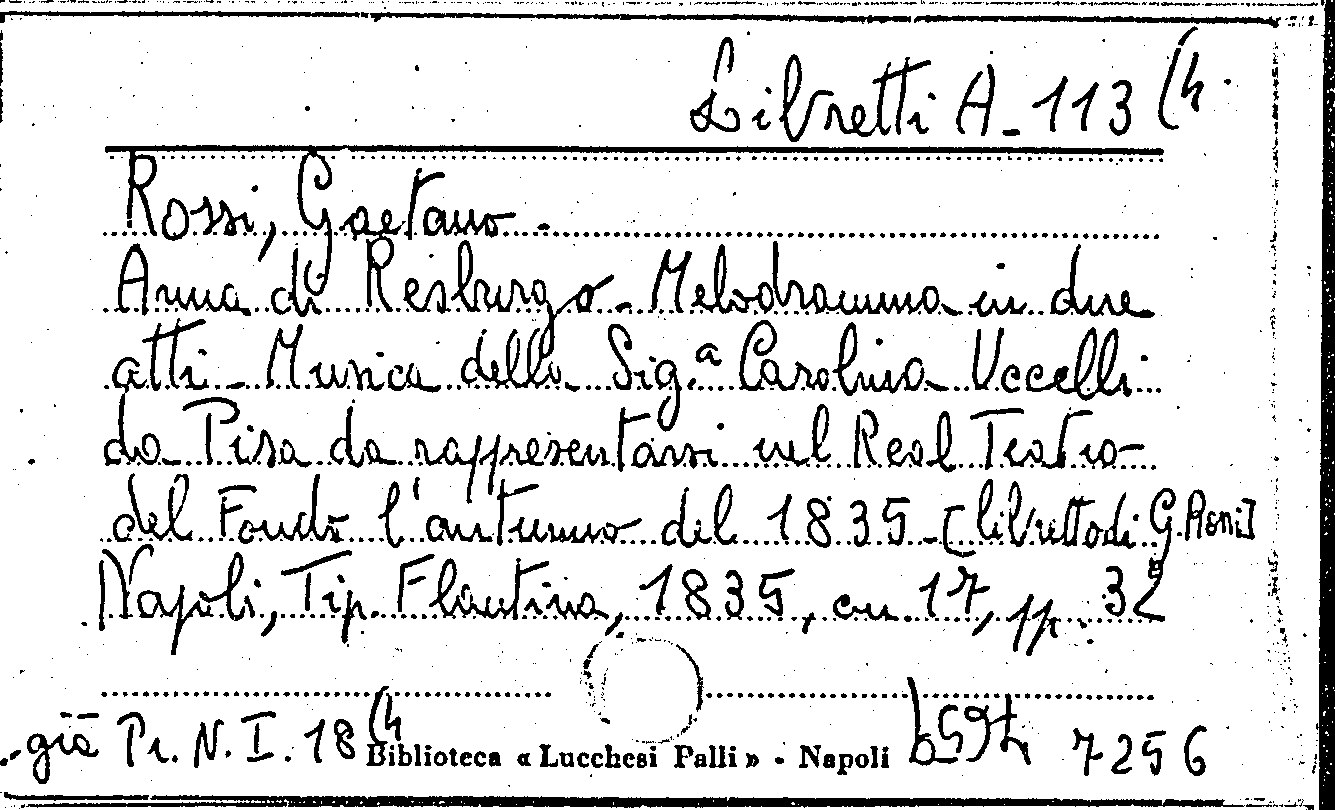 Libretti A-113 (4.
Rossi, Gaetano -
Anna di Resburgo - Melodramma in due
atti - Musica della Sig.ª Carolina Uccelli
da Pisa da rappresentarsi nel Real Teatro
del Fondo l'autunno del 1835 - [libretto di G. Rossi]
Napoli, Tip. Flautina, 1835, cm. 17, pp. 32
già Pr. N. I. 18 (4
Biblioteca « Lucchesi Palli » - Napoli 7256